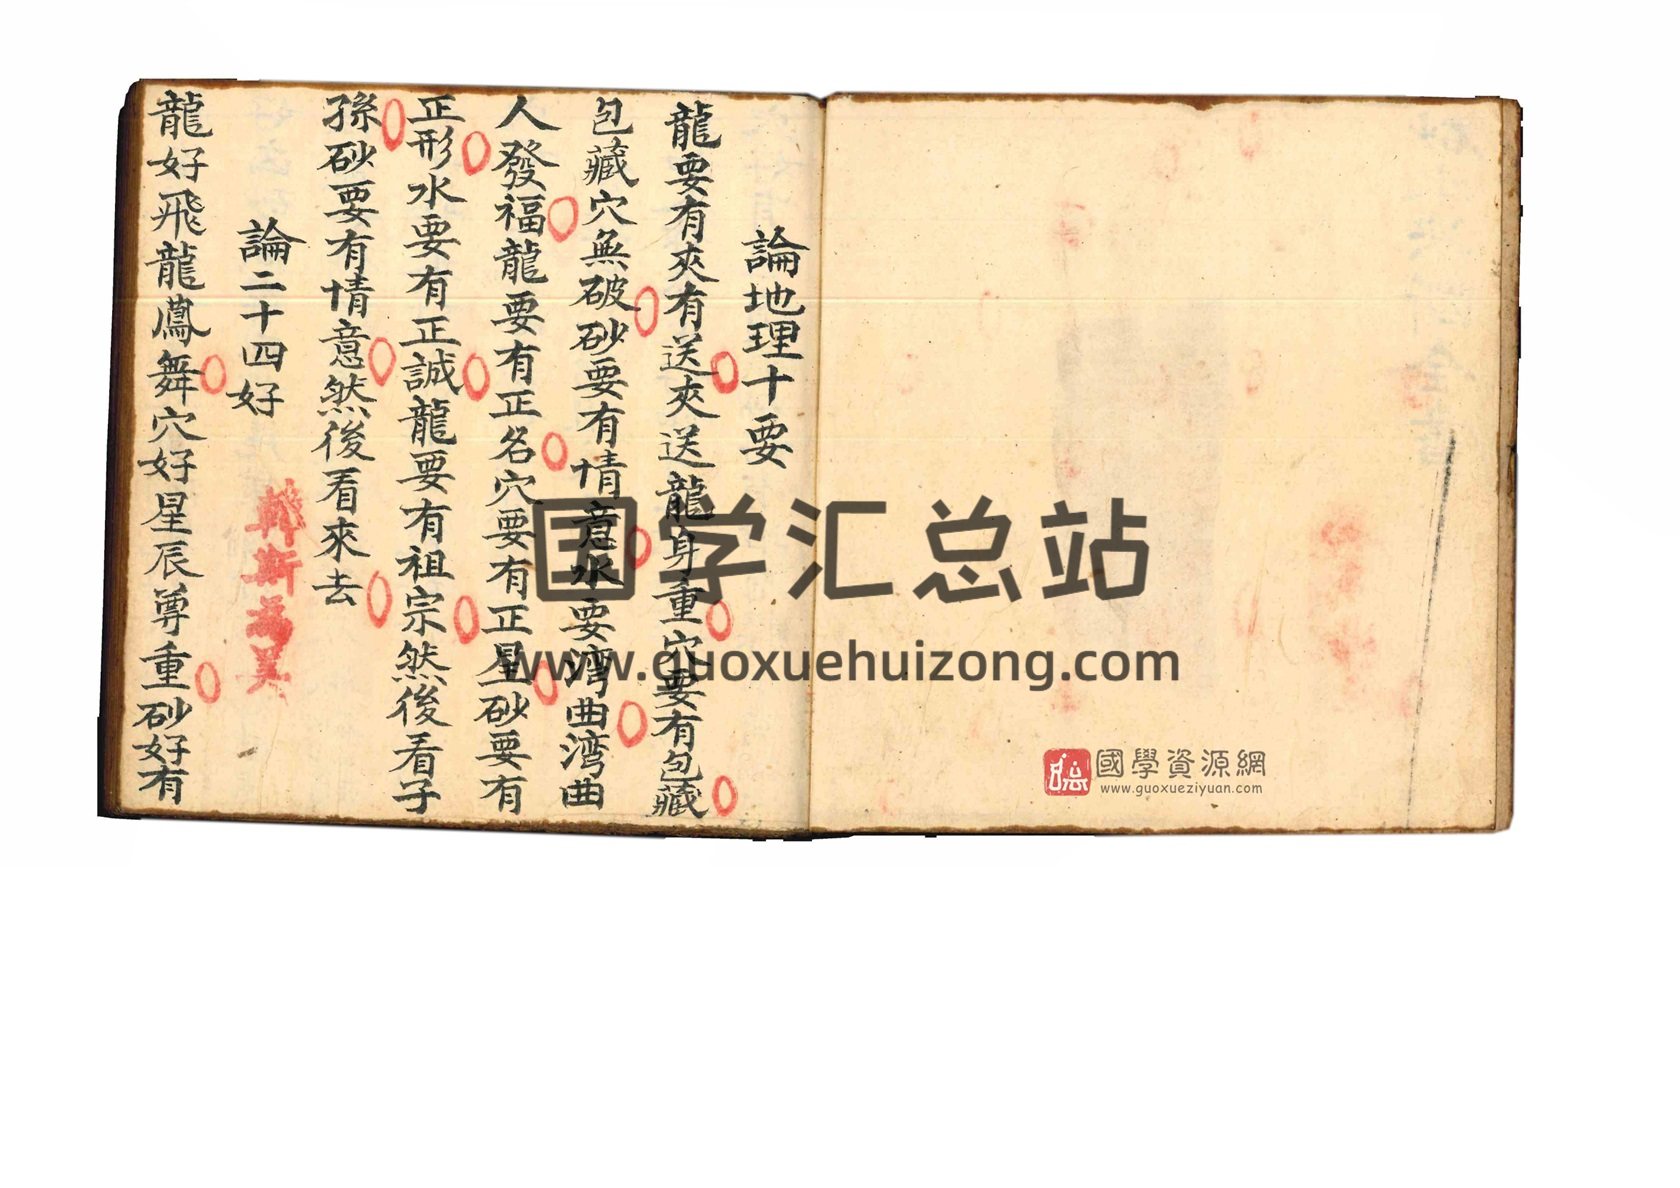 論地理十要
龍要有夾有送夾送龍身重穴要有包藏
包藏穴無破砂要有情意水要湾曲湾曲
人發福龍要有正名穴要有正星砂要有
正形水要有正誠龍要有祖宗然後看子
孫砂要有情意然後看來去
論二十四好
龍好飛龍鳳舞穴好星辰尊重砂好有
国学汇总站
www.guoxuehuizong.com
國學資源網
www.guoxueziyuan.com